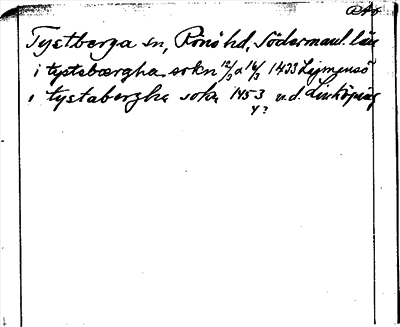 Tystberga sn, Rönö hd, Södermanl. län
i tystebærgha sokn 12/3 a 16/3 1433
i tystabergha sokn 1453 u.d. Linköping
4?